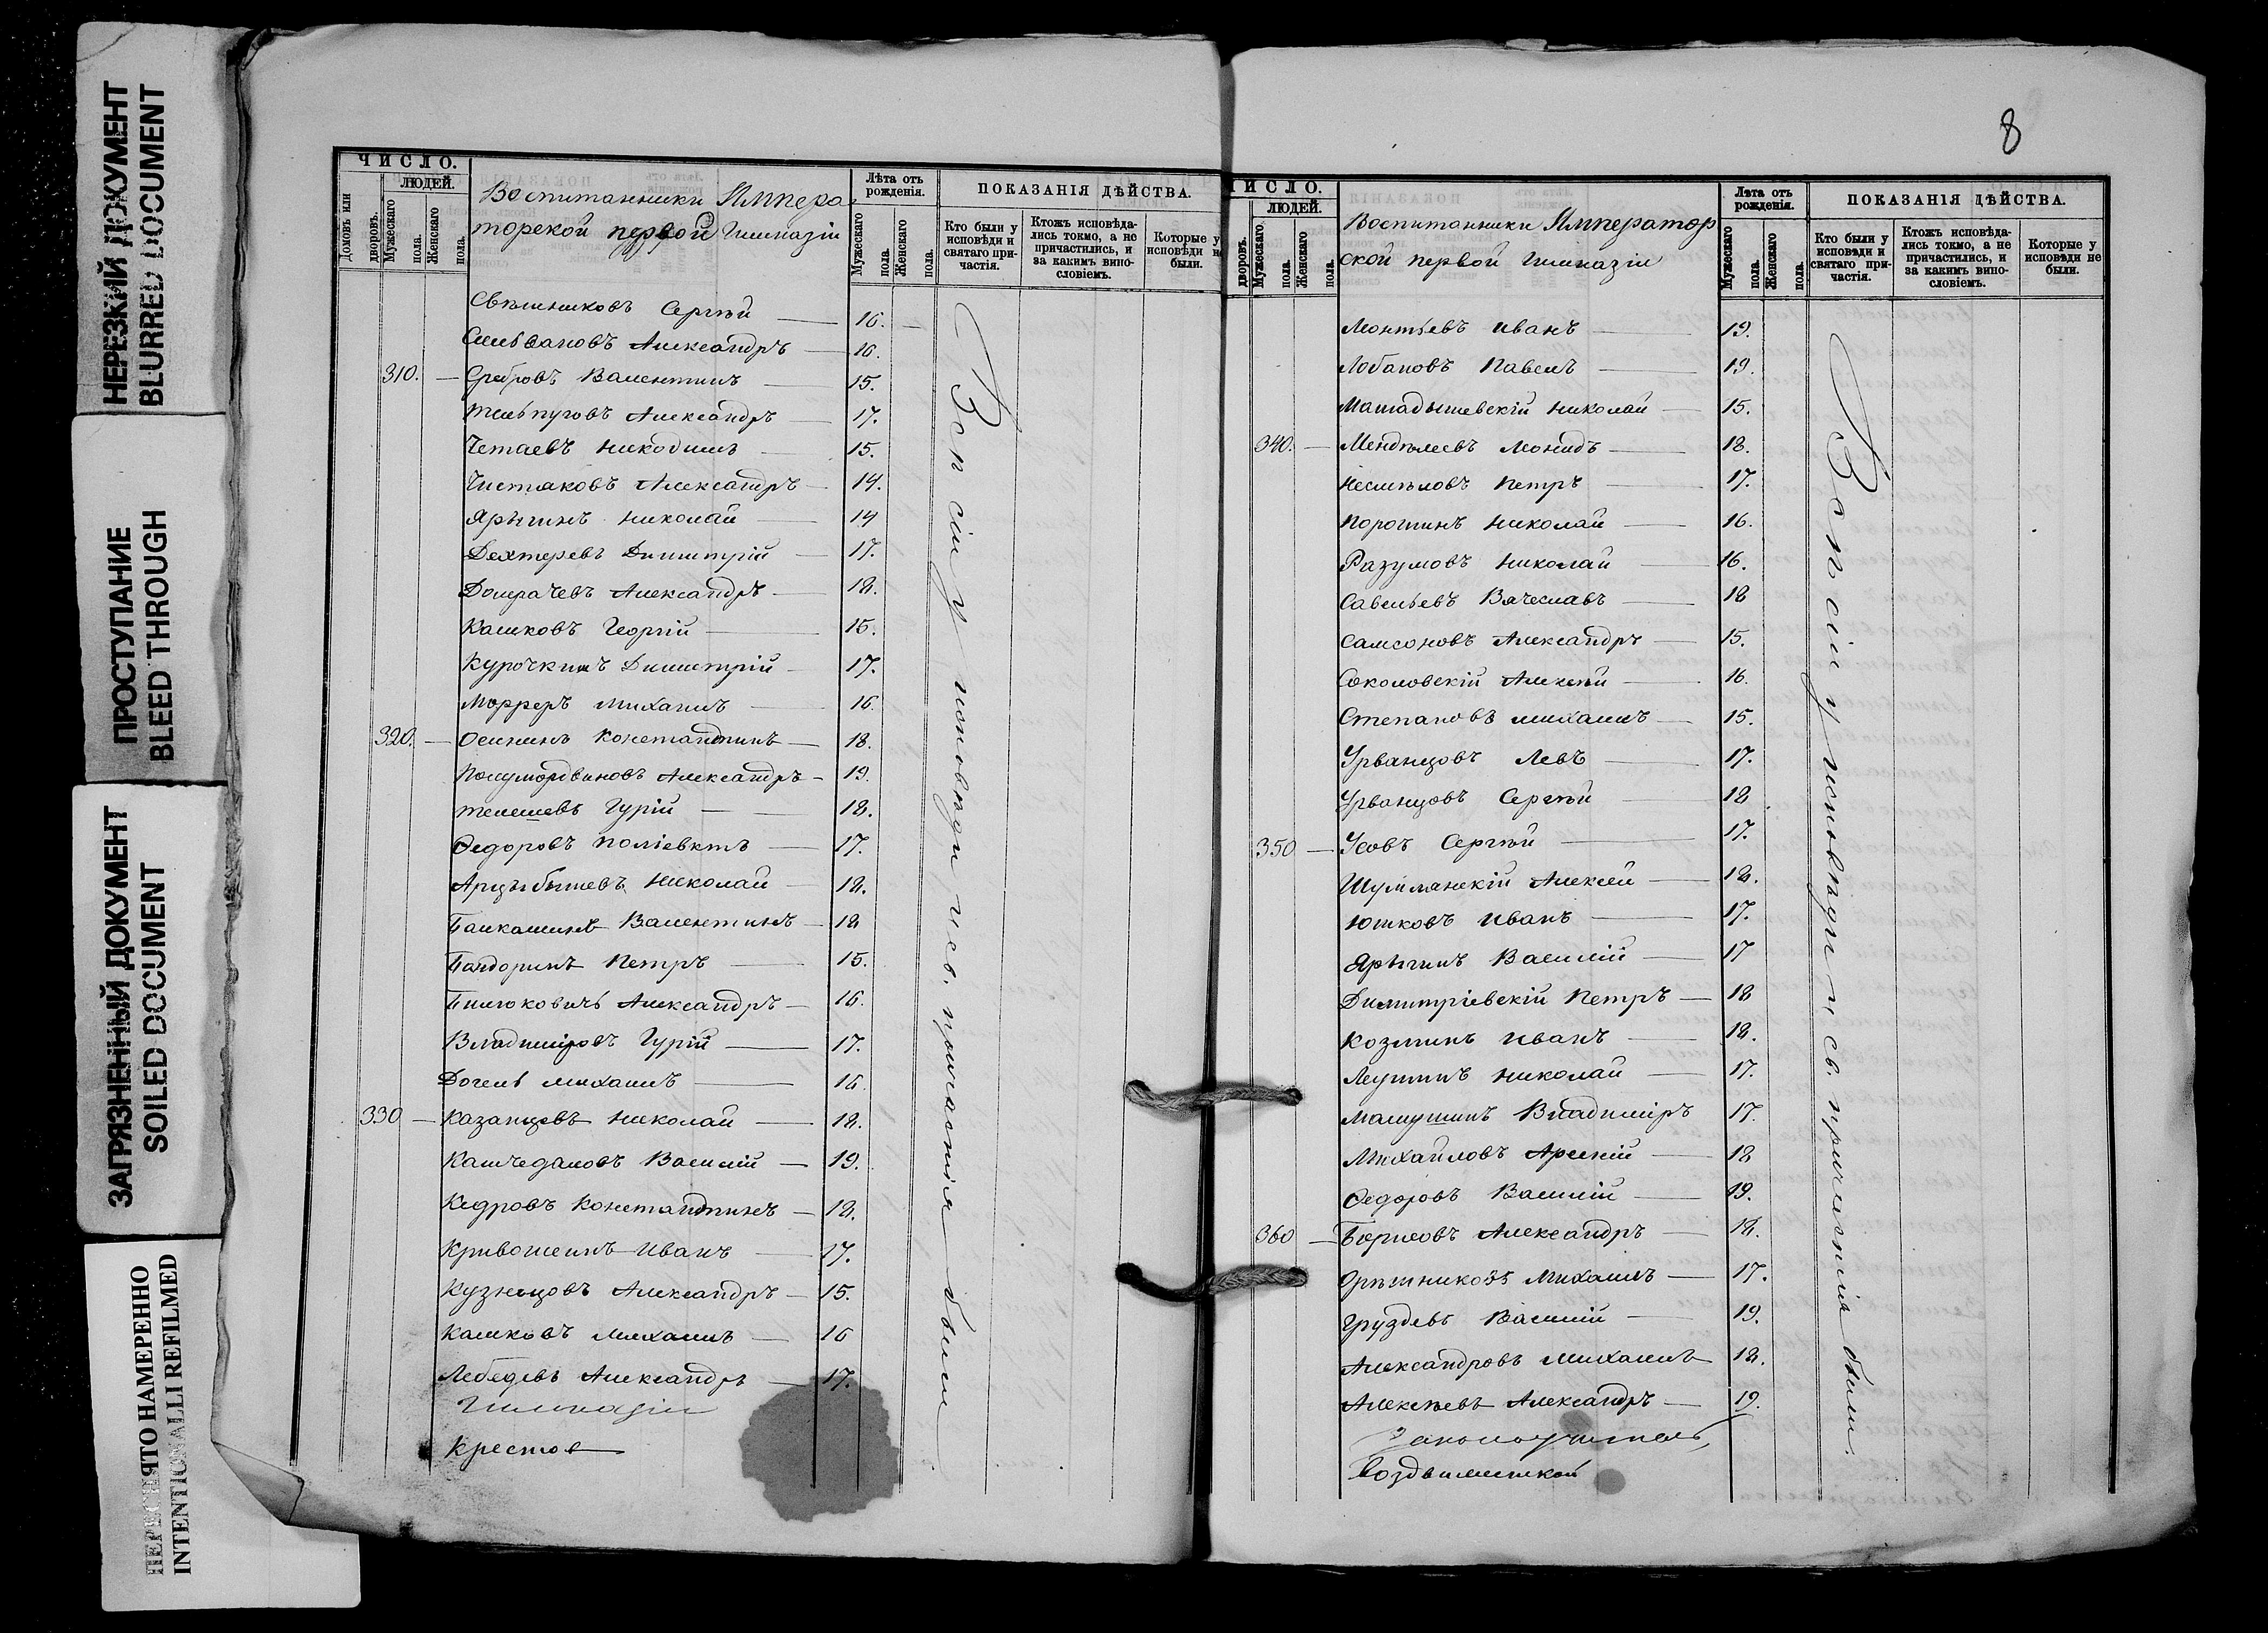 НЕРЕЗКИЙ ДОКУМЕНТ
BLURRED DOCUMENT
ПРОСТУПАНИЕ
BLEED THROUGH
ЗАГРЯЗНЕННЫЙ ДОКУМЕНТ
SOILED DOCUMENT
ПЕРЕСНЯТО НАМЕРЕННО
INTENTIONALLI REFILMED
ЧИСЛО.
ЛЮДЕЙ.
Домовъ или дворовъ.
Мужескаго пола.
Женскаго пола.
Воспитанники Импера-
торской первой Гимназіи
Лѣта отъ рожденія.
Мужескаго пола.
Женскаго пола.
ПОКАЗАНІЯ ДѢЙСТВА.
Кто были у исповѣди и святаго при-частія.
Ктожъ исповѣда-лись токмо, а не причастились, и за какимъ вино-словіемъ.
Которые у исповѣди не были.
Свѣшниковъ Сергѣй 16.
Сильвановъ Александръ 16.
310. Сребровъ Валентинъ 15.
Жельпуговъ Александръ 17.
Четаевъ Никодимъ 15.
Чистяковъ Александръ 14.
Ярыгинъ Николай 14
Дехтеревъ Димитрій 17.
Домрачевъ Александръ 18.
Кашковъ Георгій 15.
Курочкинъ Димитрій 17.
Морреръ Михаилъ 16.
320. Осининъ Константинъ 18.
Полумордвиновъ Александръ 19.
Телешевъ Гурій 18.
Ѳедоровъ Поліевктъ 17.
Арцыбышевъ Николай 18.
Балкашинъ Валентинъ 18
Бандоринъ Петръ 15.
Билюковичъ Александръ 16.
Владиміровъ Гурій 17.
Догель Михаилъ 16.
330 Казанцевъ Николай 18.
Камчедаловъ Василій 19.
Кедровъ Константинъ 18.
Кривошеинъ Иванъ 17.
Кузнецовъ Александръ 15.
Кашковъ Михаилъ 16
Лебедевъ Александръ 17.
Гимназіи
Крестов
Вси сіи у исповѣди и св. причастія были
8
ЧИСЛО.
ЛЮДЕЙ.
дворовъ.
Мужескаго пола.
Женскаго пола.
Воспитанники Император
ской первой Гимназіи
Лѣта отъ рожденія.
Мужескаго пола.
Женскаго пола.
ПОКАЗАНІЯ ДѢЙСТВА.
Кто были у исповѣди и святаго при-частія.
Ктожъ исповѣда-лись токмо, а не причастились, и за какимъ вино-словіемъ.
Которые у исповѣди не были.
Леонтьевъ Иванъ 19.
Лобановъ Павелъ 19.
Машадышевскій Николай 15.
340. Мендѣлеевъ Леонидъ 18.
Несмѣловъ Петръ 17.
Порошинъ Николай 16.
Разумовъ Николай 16.
Савельевъ Вячеславъ 18
Самсоновъ Александръ 15.
Соколовскій Алексѣй 16.
Степановъ Михаилъ 15.
Урванцовъ Левъ 17.
Урванцовъ Сергѣй 18
350 Усовъ Сергѣй 17.
Шумлянскій Алексѣй 18.
Юшковъ Иванъ 17.
Ярыгинъ Василій 17
Димитріевскій Петръ 18
Козминъ Иванъ 18.
Леушинъ Николай 17.
Малушинъ Владиміръ 17.
Михайловъ Арсеній 18
Ѳедоровъ Василій 19.
360 Борисовъ Александръ 18.
Орѣшниковъ Михаилъ 17.
Груздевъ Василій 19.
Александровъ Михаилъ 18.
Алексѣевъ Александръ 19.
Законоучитель,
Воздвиженской
Вси сіи у исповѣди и св. причастія были.